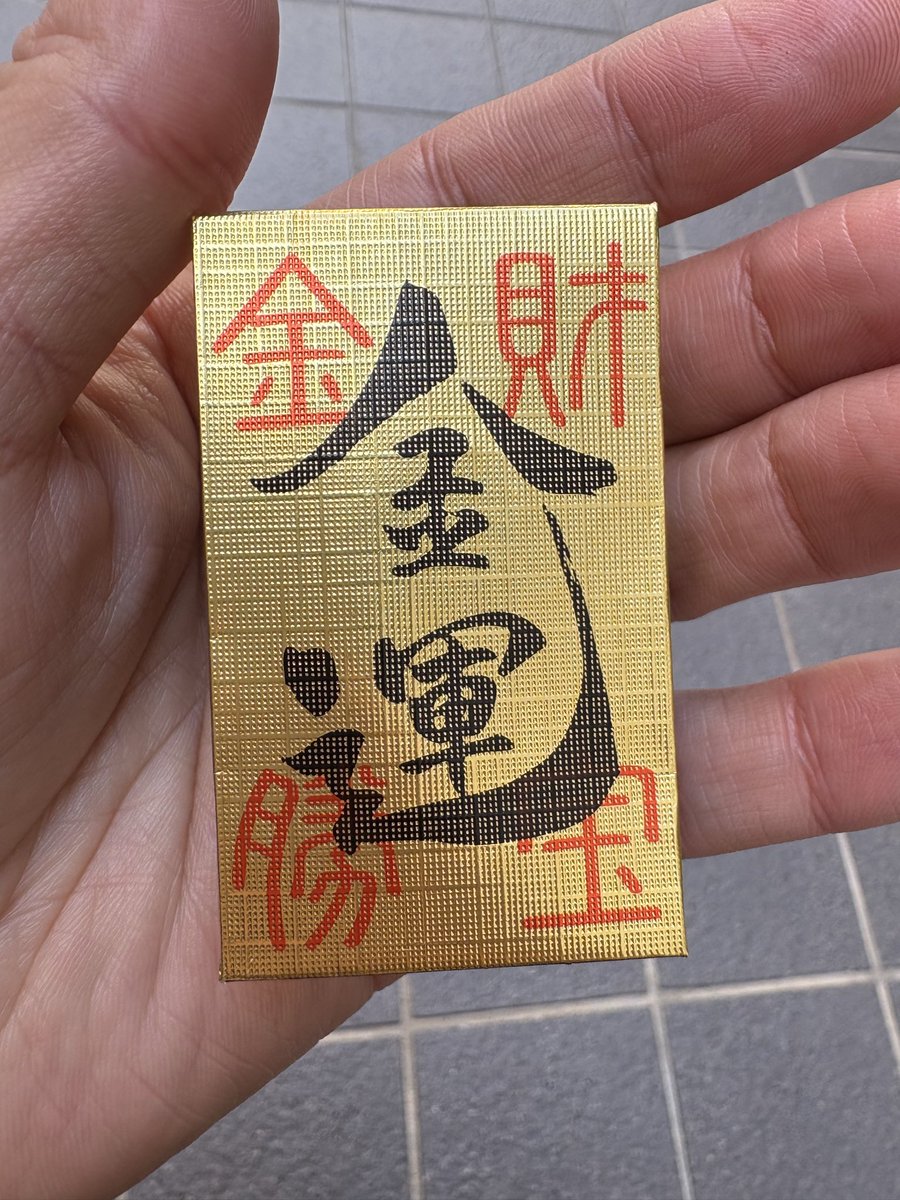 金 財
金
運
勝 宝